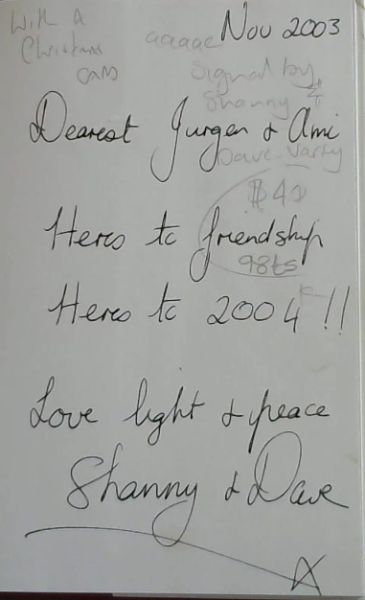 Nov 2003
With a
Christmas
card
aaaae
Signed by
Shanny &
Dave Varty
Dearest Jurgen & Ami
$40
Heres to friendship
98ts
Heres to 2004 !!
Love light & peace
Shanny & Dave
X